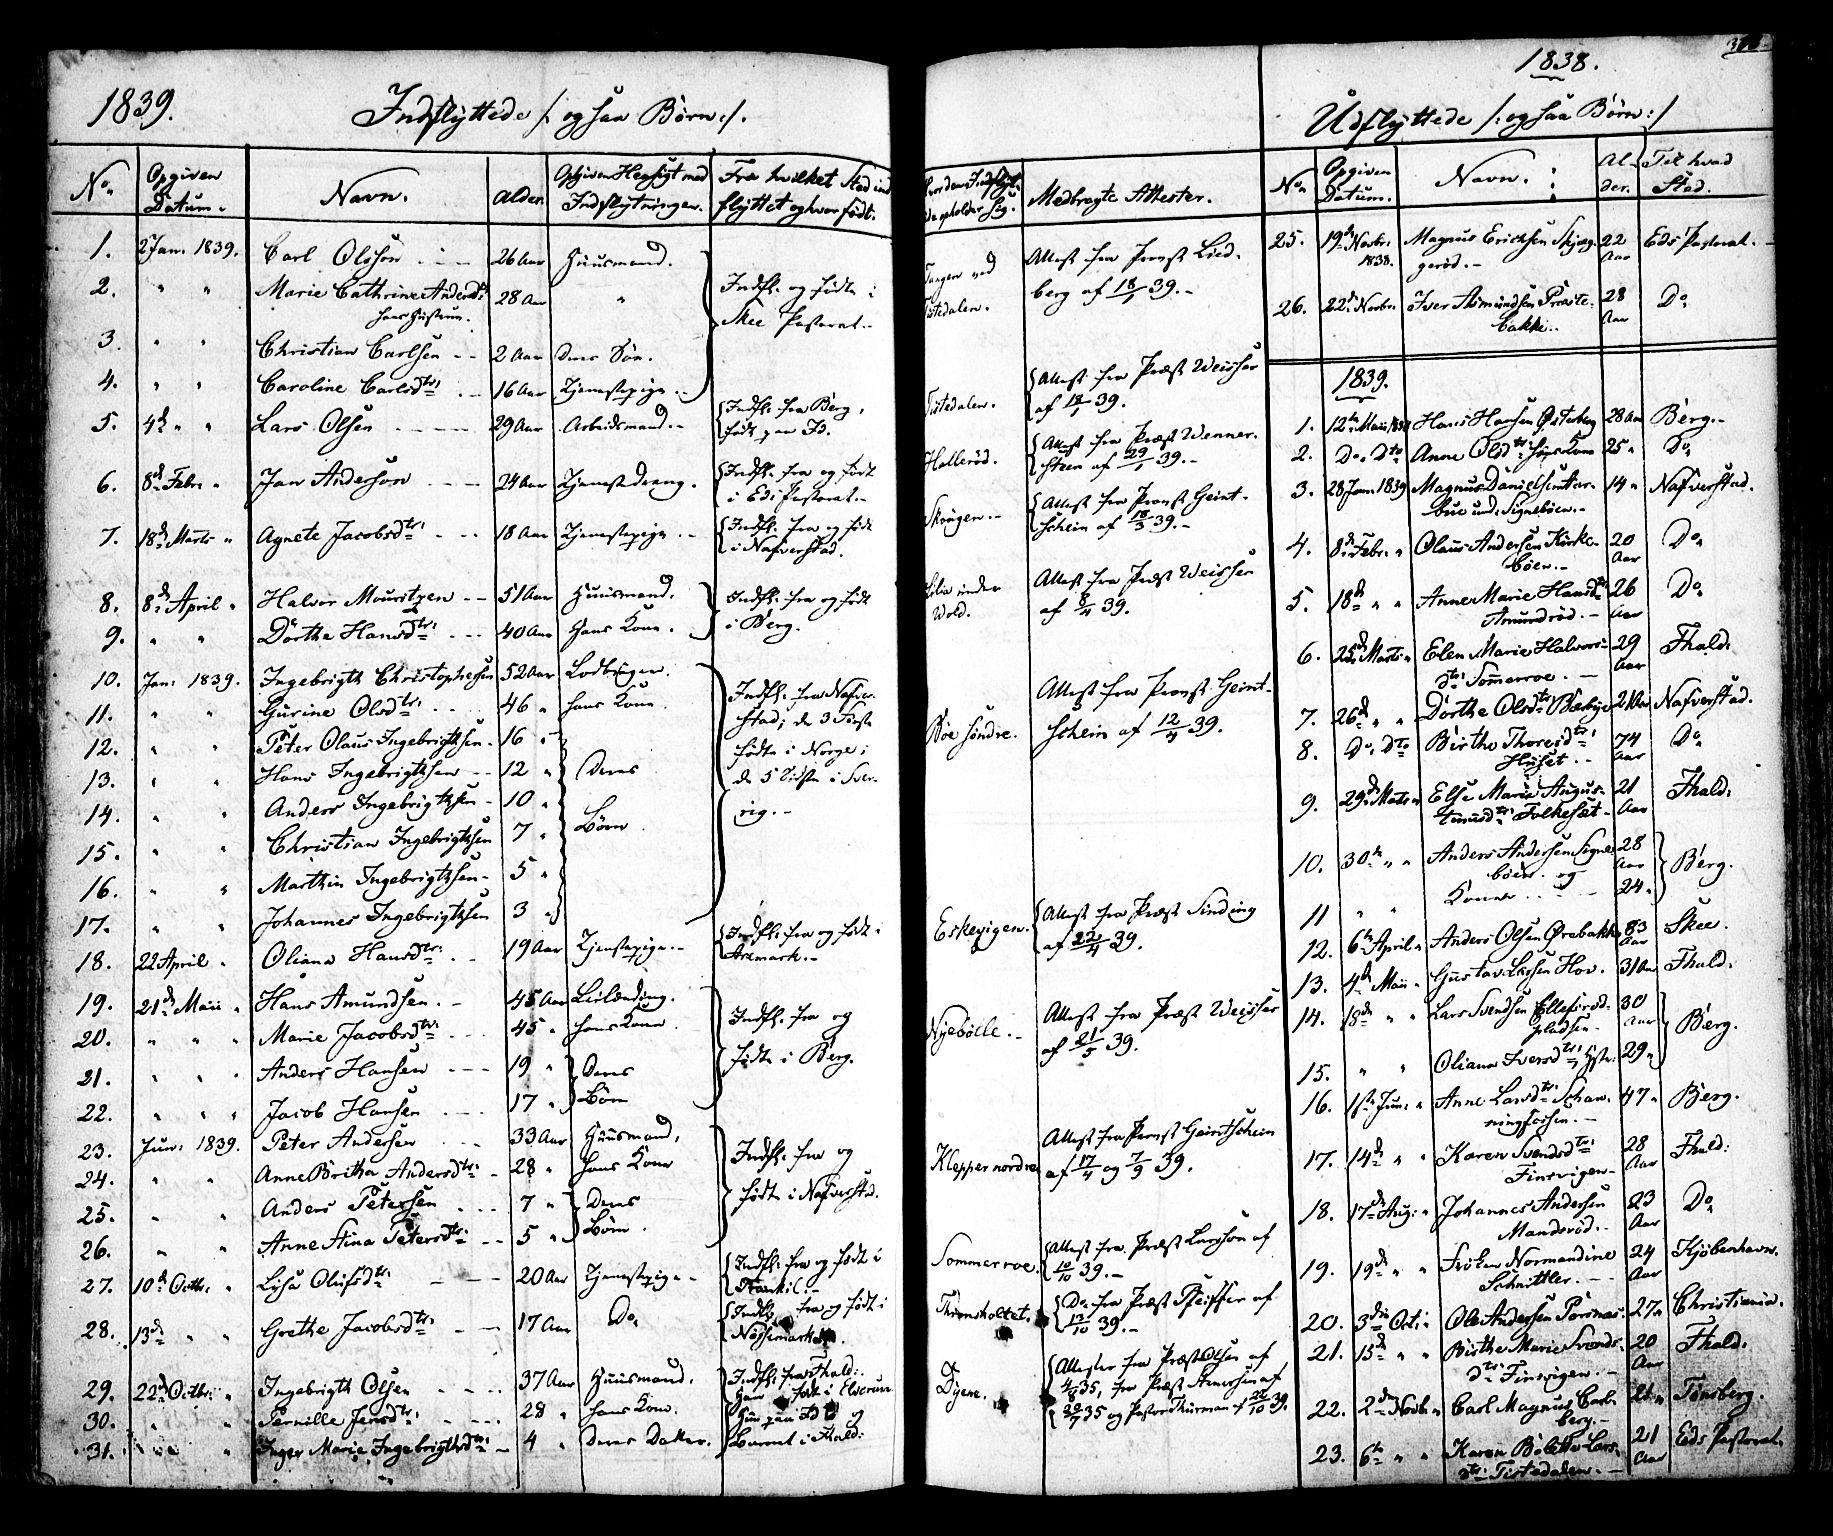 1839. Indflyttede /: ogsaa Børn :/.
No. Opgiven Datum. Navn. Alder. Opgiven Hensigt med Indflytningen. Fra hvilket Sted ind flyttet og hvor født.
1. 2 Jan: 1839. Carl Olsson 26 Aar Huusmand.
2. " " Marie Cathrine Andersdtr: hans Hustrue. 28 Aar " Indfl: og fødte i Skee Pastorat.
3. " " Christian Carlsen 2 Aar Deres Søn.
4. " " Caroline Carlsdtr: 16 Aar Tjenestepige
5. 4de " " Lars Olsen 29 Aar Arbeidsmand. Indfl: fra Berg, født paa Id.
6. 8de Febr: " Jan Anderson 24 Aar Tjenestedreng. Indfl: fra og født i Eds Pastorat.
7. 18de Marts " Agnete Jacobsdtr: 18 Aar Tjenestepige Indfl: fra og født i Nafverstad.
8. 8de April " Halvor Mouritzen 51 Aar Huusmand. Indfl: fra og født i Berg.
9. " " Dorthe Hansdtr: 40 Aar Hans Kone.
10. Jan: 1839. Ingebrigth Christophersen 52 Aar Lodbruger.
11. " " Gurine Olsdtr: 46 " hans Kone. Indfl: fra Nafver-
12. " " Peter Olaus Ingebrigthsen 16 " stad; de 3 Første
13. " " Hans Ingebrigthsen 12 " Deres fødte i Norge;
14. " " Anders Ingebrigthsen 10 " Børn de 5 Sidste i Sver-
15. " " Christian Ingebrigthsen 7 " rig.
16. " " Marthin Ingebrigthsen 5 "
17. " " Johannes Ingebrigthsen 3 "
18. 22 April " Oliana Hansdtr: 19 Aar Tjenestepige. Indfl: fra og født i Aremark.
19. 21de Maii " Hans Amundsen 45 Aar Leilænding. Indfl: fra og
20. " " " Marie Jacobsdtr: 45 " hans Kone fødte i Berg.
21. " " " Anders Hansen 19 " Deres
22. " " " Jacob Hansen 17 " Børn
23. Jun: 1839. Peter Andersen 33 Aar Huusmand, Indfl: fra og
24. " " Anne Britha Andersdtr: 28 " hans Kone fødte i Nafverstad.
25. " " Anders Petersen 7 " Deres
26. " " Anne Stina Petersdtr: 5 " Børn.
27. 10de Octbr: " Lisa Olufsdtr: 20 Aar Tjenestepige Indfl: fra og født i
28. 13de " " Grethe Jacobsdtr: 17 Aar Do. Indfl: fra og født i Nössemark.
29. 22de Octbr: " Ingebrigth Olsen 37 Aar Huusmand. Indfl: fra Fhald:
30. " " Pernille Jensdtr: 28 " hans Kone.
31. " " Inger Marie Ingebrigthsdtr: 4 " Deres Datter. Barnet i Fhald:
Medbragte Attester.
Tangen ved Tistedalen. Attest fra Provst Lied-
berg af 18/1 39.
Tistedalen. Attest fra Præst Weisser
af 18/1 39.
Hallerød. Attest fra Præst Wenner-
steen af 29/1 39.
Skougen. Attest fra Provst Geint-
schein af 18/3 39.
Lilie under Wold. Attest fra Præst Weisser
af 8/4 39.
Boe søndre. Attest fra Provst Geint-
schein af 12/4 39.
Eskevigen. Attest fra Præst Sinding
af 22/4 39.
Nyebølle. Attest fra Præst Weisser
af 21/5 39.
Klepper nordre Attest fra Provst Geintschein
af 17/4 og 7/9 39.
Sommerroe. Attest fra Præst Larsson af
10/10 39.
Thronsholtet. Do. fra Præst Pfeiffer af
13/10 39.
Dyene. Attester fra Præst Olsen af
4/8 35, fra Præst
35 og Pastor Thurman af 22/10 39.
1838.
Udflyttede /: ogsaa Børn :/
No. Opgiven Datum. Navn. Al- der. Til hvad Sted.
25. 19de Novbr: 1838. Magnus Ericksen Skjøg- gerød. 22 Aar Eds Pastorat.
26. 22de Novbr: Iver Asmundsen Præste- bakke. 28 Aar Do.
1839.
1. 12te Maii 1839 Hans Hansen Østerberg 28 Aar Berg.
2. Do. Dto Anne Olsdtr: hans Kone 25 " Do.
3. 28 Jan: 1839 Magnus Danielsen 14 " Nafverstad.
4. 8de Febr: " Olaus Andersen Kirke- bøen. 20 Aar Do.
5. 18de " " Anne Marie Hansdtr: Amundrød. 26 Aar Do.
6. 25de Marts " Elen Marie Halvors- dtr: Sommerroe. 29 Aar Fhald:
7. 26de " " Dorthe Olsdtr: Bærbye 21 Aar Nafverstad.
8. Do. Dto Birthe Thoresdtr: Huset. 74 Aar Do.
9. 29de Marts " Else Marie Augus- tinusdtr: Folkesæt 21 Aar Fhald:
10. 30te " " Anders Andersen Signe- bøen og 28 Aar Berg.
11 " " Kone 24 "
12. 6te April " Anders Olsen Ørebakke 83 Aar Skee.
13. 4de Maii " Gustav Larsen Hov. 31 Aar Fhald:
14. 18de " " Lars Svendsen Ellefsrød- pladsen. 30 Aar Berg.
15. " " Oliana Iversdtr: Hstr: 29 "
16. 1ste Jun: " Anne Larsdtr: Schan- ningfossen. 47 " Berg.
17. 14de " " Karen Svendsdtr: Finsvigen 28 Aar Fhald:
18. 17de Aug: " Johannes Andersen Mansrød. 23 Aar Do.
19. 19de " " Frøken Normandine Schnittler. 24 Aar Kjøbenhavn.
20. 3die Oct: " Ole Andersen Porsnæs 27 " Christiania.
21. 15de " " Birthe Marie Svends- dtr: Finsvigen. 20 Aar Fhald:
22. 2de Novbr " Carl Magnus Carl- berg. 21 " Tønsberg.
23. 6te " " Karen Bolette Lars- dtr: Tistedalen. 21 Aar Eds Pastorat.